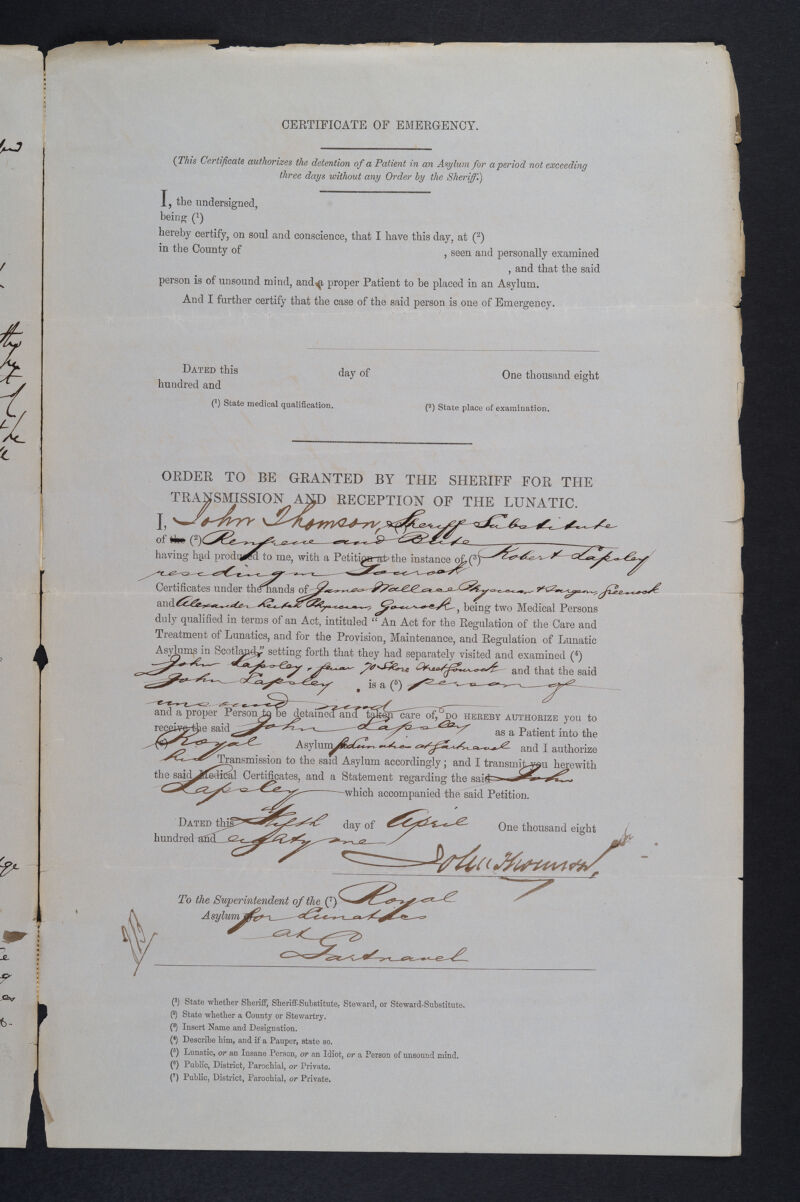 CERTIFICATE OF EMERGENCY.
(This Certificate authorizes the detention of a Patient in an Asylum for a period not exceeding
three days without any Order by the Sheriff.)
I, the undersigned,
being (1)
hereby certify, on soul and conscience, that I have this day, at (2)
in the County of , seen and personally examined
, and that the said
person is of unsound mind, and a proper Patient to be placed in an Asylum.
And I further certify that the case of the said person is one of Emergency.
DATED this day of One thousand eight
hundred and
(1) State medical qualification. (2) State place of examination.
ORDER TO BE GRANTED BY THE SHERIFF FOR THE
TRANSMISSION AND RECEPTION OF THE LUNATIC.
I, John Thomson, Sheriff Substitute
of the (2) Renfrew and Bute
having had produced to me, with a Petition at the instance of (3) Robert Lapsley
residing in Gourock
Certificates under the hands of James Wallace Physician & Surgeon, Greenock
and Alexander Physician, Gourock, being two Medical Persons
duly qualified in terms of an Act, intituled "An Act for the Regulation of the Care and
Treatment of Lunatics, and for the Provision, Maintenance, and Regulation of Lunatic
Asylums in Scotland," setting forth that they had separately visited and examined (4)
John Lapsley, feuar 70 Shore Street Gourock and that the said
John Lapsley is a (5) person of
unsound mind
and a proper Person to be detained and taken care of, DO HEREBY AUTHORIZE you to
receive the said John Lapsley as a Patient into the
(6) Royal Asylum for Lunatics at Gartnavel and I authorize
his Transmission to the said Asylum accordingly; and I transmit you herewith
the said Medical Certificates, and a Statement regarding the said John
Lapsley which accompanied the said Petition.
DATED this Fifth day of April One thousand eight
hundred and eighty one
John Thomson.
To the Superintendent of the (7) Royal
Asylum for Lunatics
at
Gartnavel
213
(1) State whether Sheriff, Sheriff-Substitute, Steward, or Steward-Substitute.
(2) State whether a County or Stewartry.
(3) Insert Name and Designation.
(4) Describe him, and if a Pauper, state so.
(5) Lunatic, or an Insane Person, or an Idiot, or a Person of unsound mind.
(6) Public, District, Parochial, or Private.
(7) Public, District, Parochial, or Private.